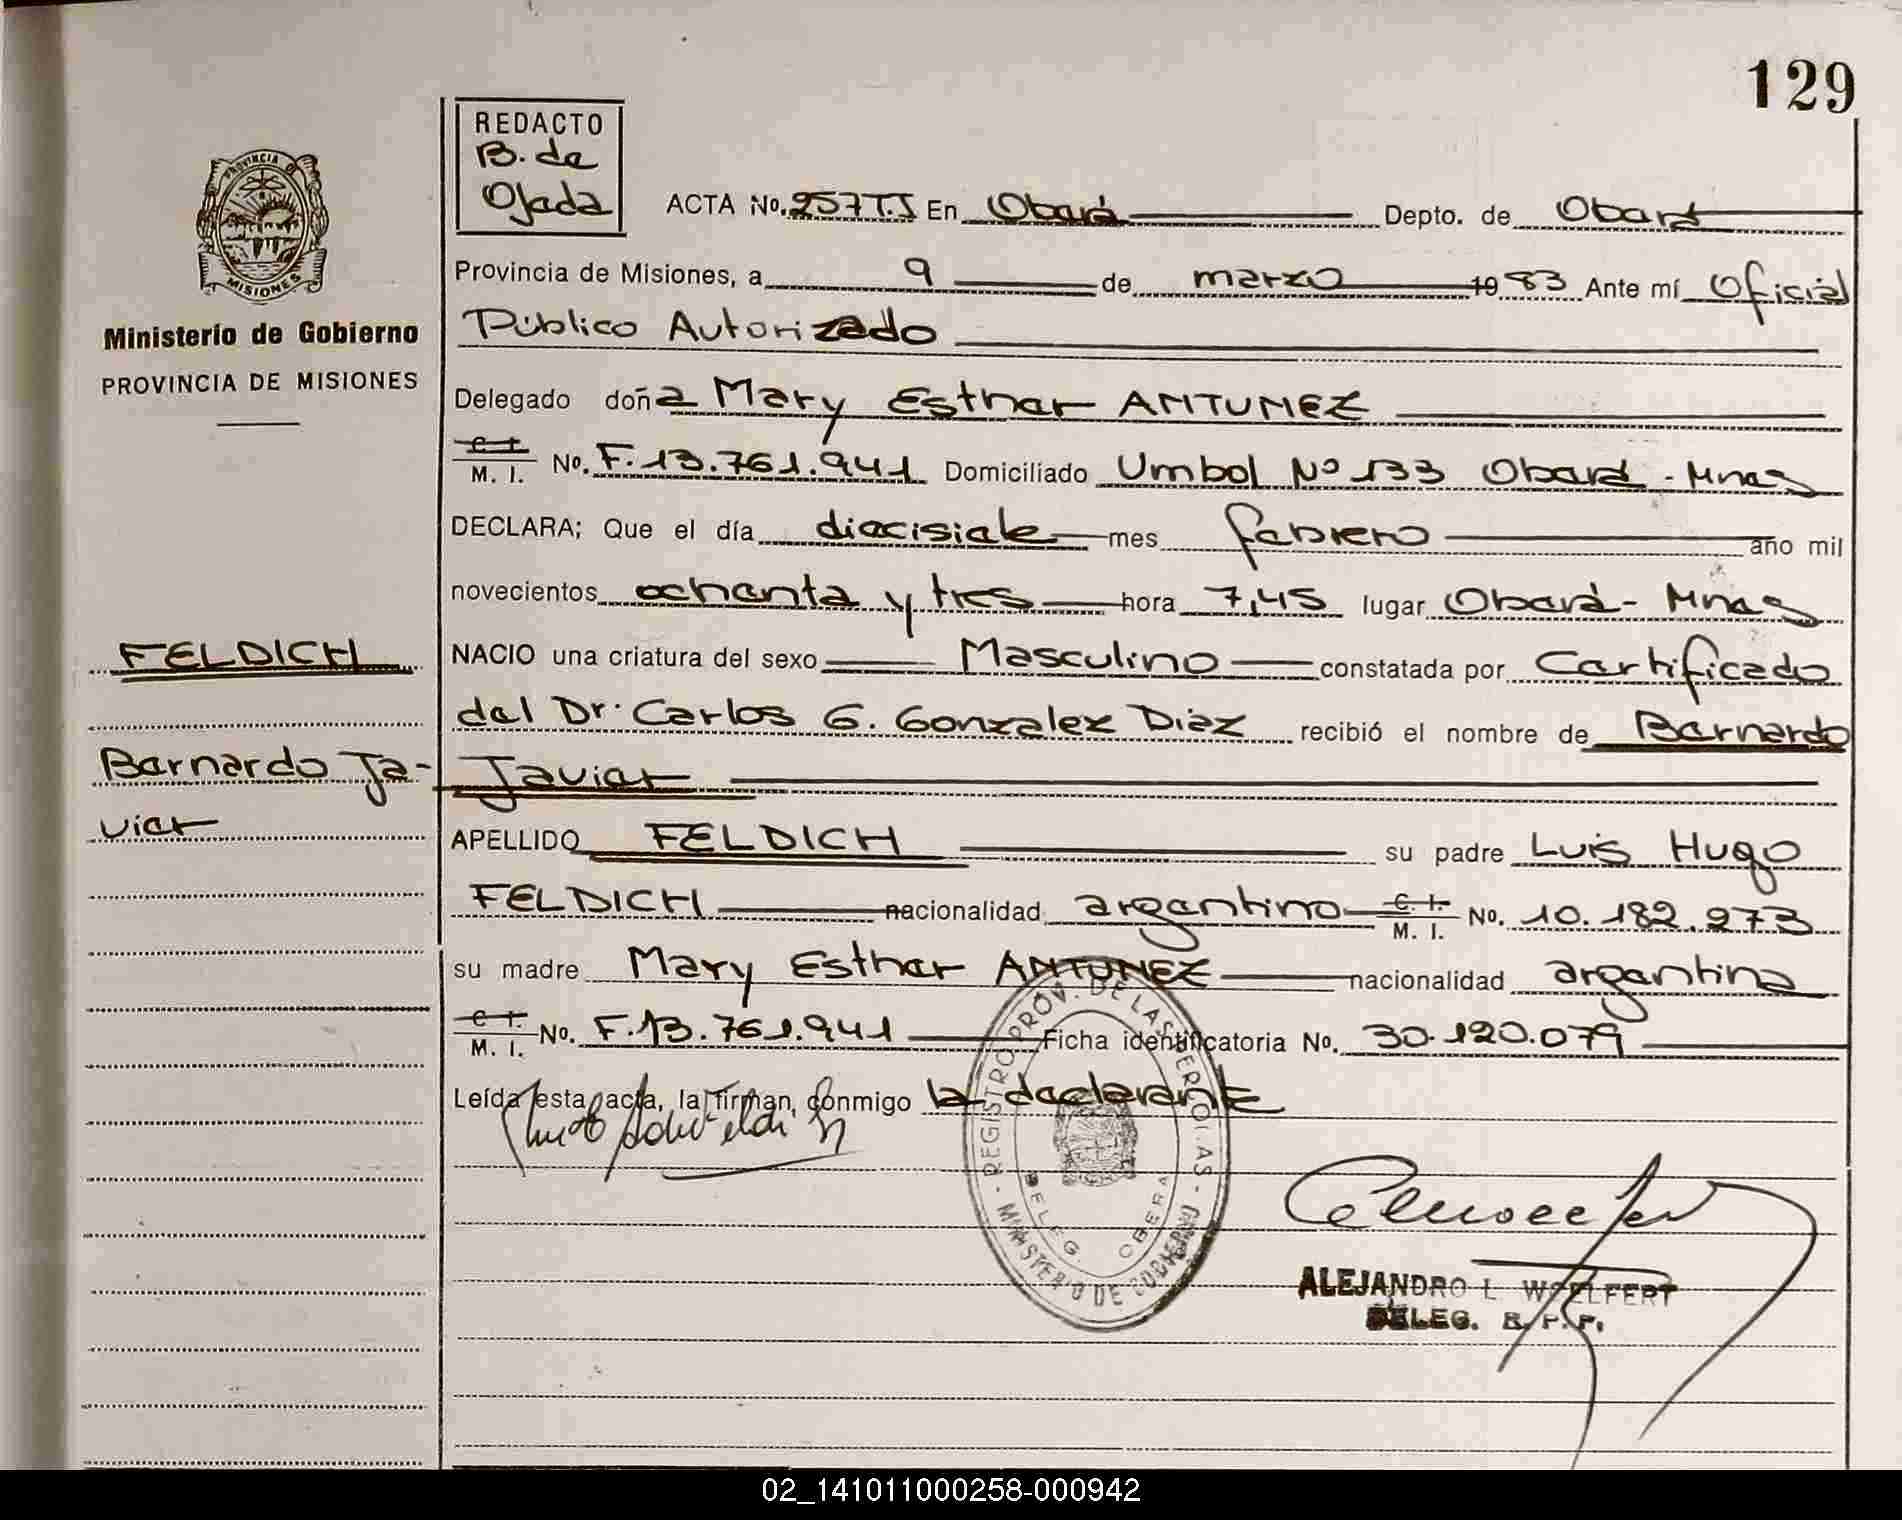 129
REDACTO
B. de
Ojeda
PROVINCIA DE
MISIONES
Ministerio de Gobierno
PROVINCIA DE MISIONES
ACTA No. 257 T.I En Oberá Depto. de Oberá
Provincia de Misiones, a 9 de marzo 1983 Ante mí Oficial
Público Autorizado
Delegado doña Mary Esther ANTUNEZ
C. I.
M. I. No. F. 13.761.941 Domiciliado Umbol No 133 Oberá - Mnes
DECLARA; Que el día diecisiete mes febrero año mil
novecientos ochenta y tres hora 7,45 lugar Oberá - Mnes
FELDICH
NACIO una criatura del sexo Masculino constatada por Certificado
del Dr. Carlos G. Gonzalez Diaz recibió el nombre de Bernardo
Bernardo Ja-
vier
Javier
APELLIDO FELDICH su padre Luis Hugo
FELDICH nacionalidad argentino C. I. M. I. No. 10.182.273
su madre Mary Esther ANTUNEZ nacionalidad argentina
C. I.
M. I. No. F. 13.761.941 Ficha identificatoria No. 30.120.079
Leída esta acta, la firman, conmigo la declarante
REGISTRO PROV. DE LAS PERSONAS - MINISTERIO DE GOBIERNO
DELEG. OBERA
ALEJANDRO L. WOELFERT
DELEG. R. P. P.
02_141011000258-000942